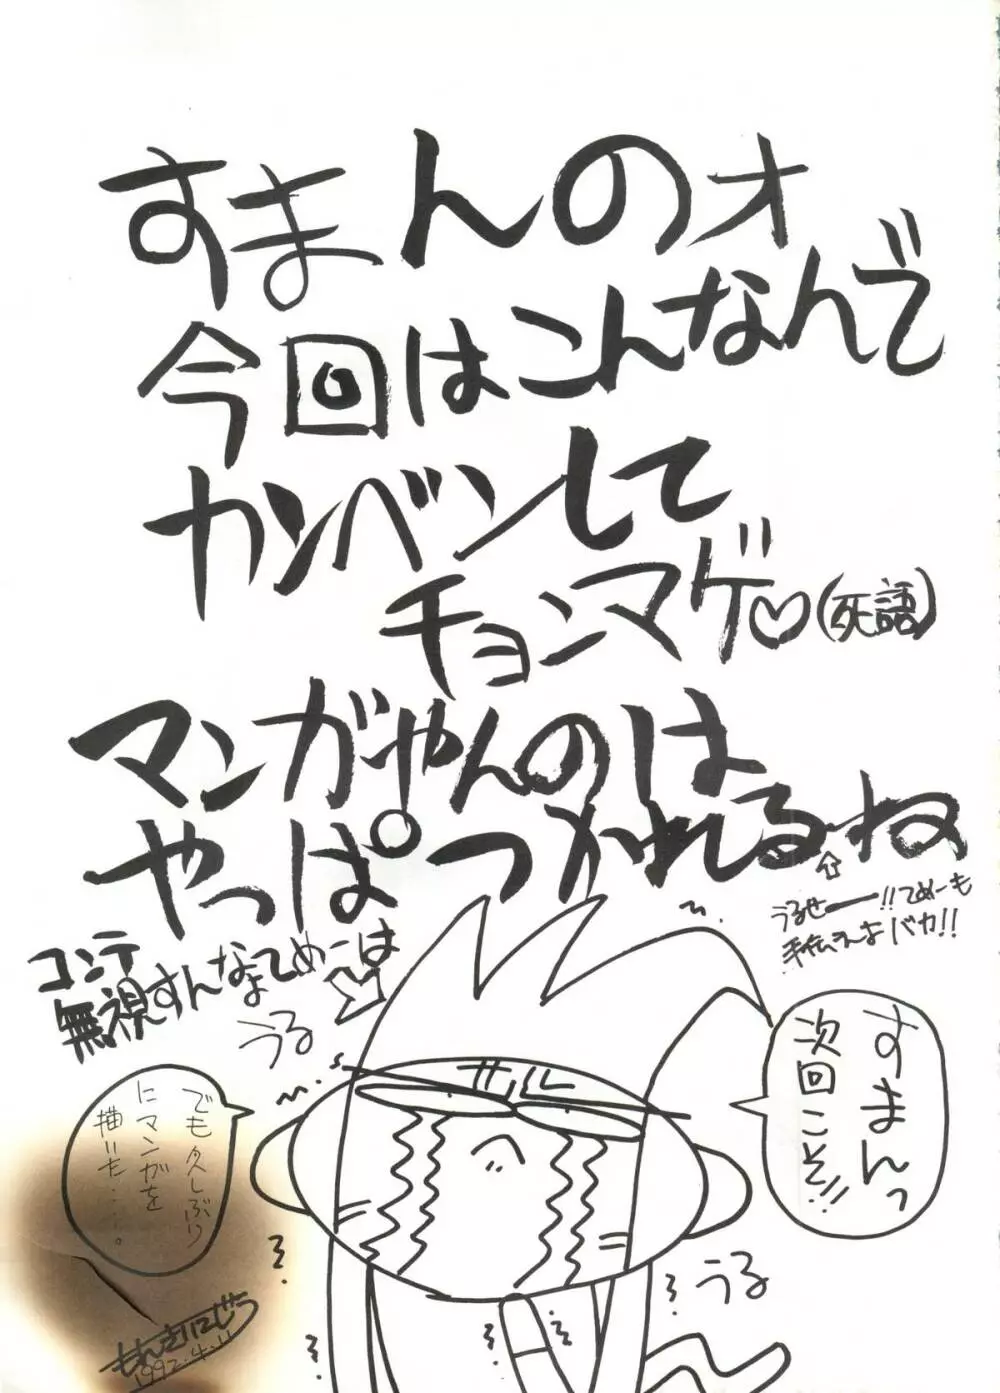 すまんのオ
今回はこんなんで
カンベンして
チョンマゲ♡(死語)
マンガやんのは
やっぱつかれるね
⇧
うるせー!!てめーも
バカ!!
コンテ
無視すんなてめーは
うる
すまんっ
次回こそ!!
でも久しぶり
にマンガを
描いた・・・・。
うる
1992.4.11